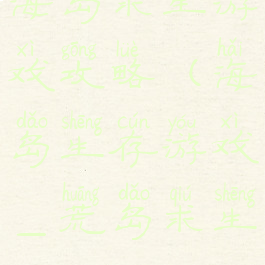 海岛求生游
xì gōng lüè hǎi
戏攻略（海
dǎo shēng cún yóu xì
岛生存游戏
huāng dǎo qiú shēng
_荒岛求生